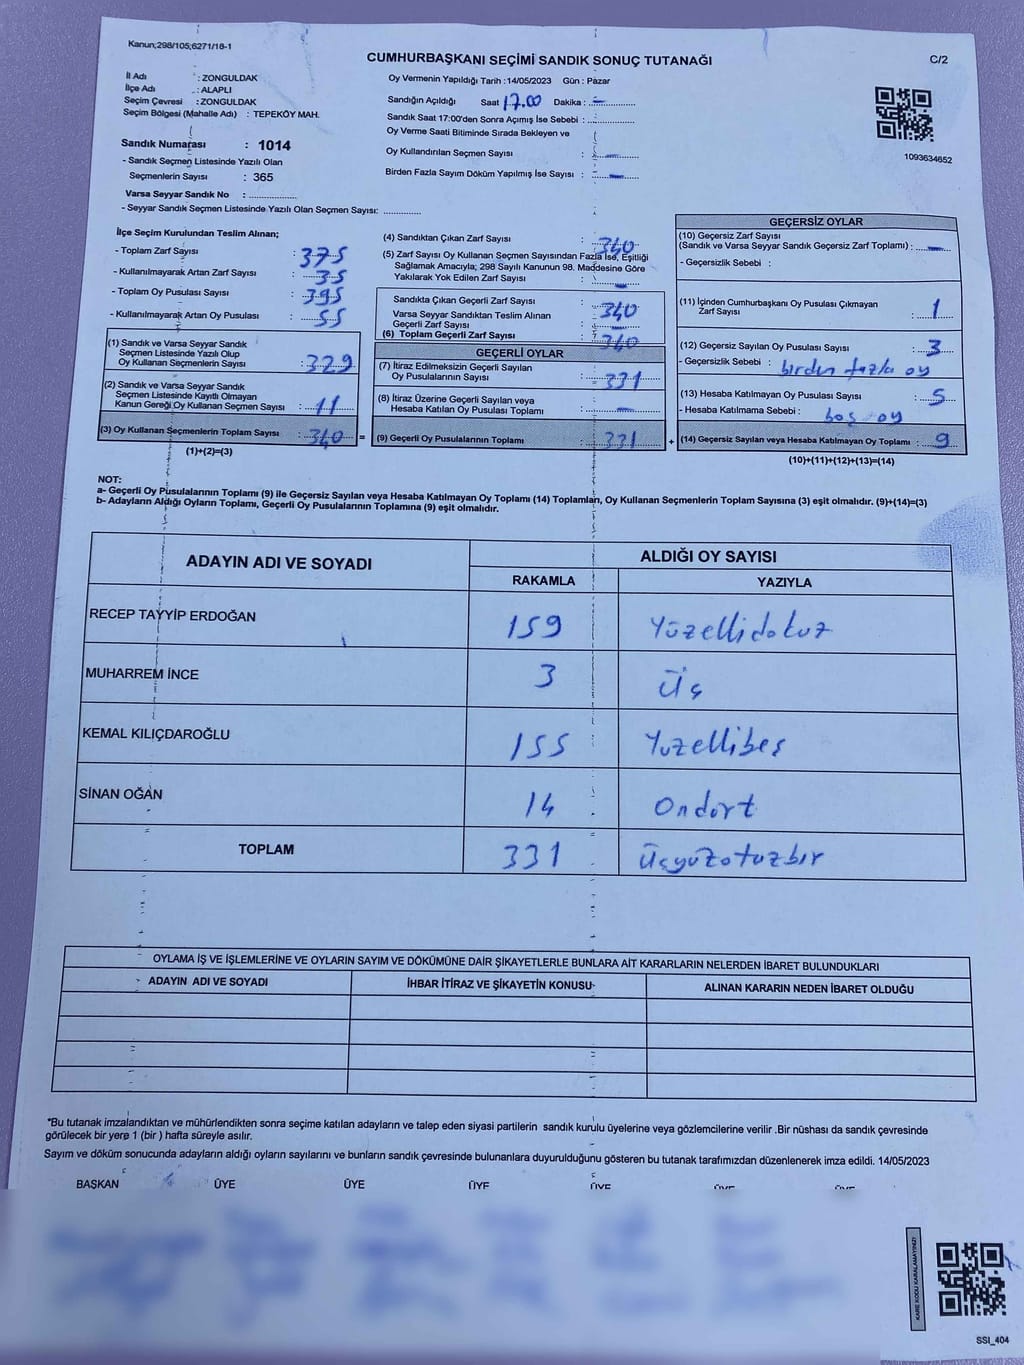 Kanun;298/105;6271/18-1
CUMHURBAŞKANI SEÇİMİ SANDIK SONUÇ TUTANAĞI
C/2
İl Adı : ZONGULDAK
İlçe Adı : ALAPLI
Seçim Çevresi : ZONGULDAK
Seçim Bölgesi (Mahalle Adı) : TEPEKÖY MAH.
Sandık Numarası : 1014
- Sandık Seçmen Listesinde Yazılı Olan
Seçmenlerin Sayısı : 365
Varsa Seyyar Sandık No : ..............
- Seyyar Sandık Seçmen Listesinde Yazılı Olan Seçmen Sayısı: ............
Oy Vermenin Yapıldığı Tarih : 14/05/2023 Gün : Pazar
Sandığın Açıldığı Saat 17.00 Dakika : —
Sandık Saat 17:00'den Sonra Açımış İse Sebebi :
Oy Verme Saati Bitiminde Sırada Bekleyen ve
Oy Kullandırılan Seçmen Sayısı : —
Birden Fazla Sayım Döküm Yapılmış İse Sayısı : —
1093634652
İlçe Seçim Kurulundan Teslim Alınan;
- Toplam Zarf Sayısı : 375
- Kullanılmayarak Artan Zarf Sayısı : 35
- Toplam Oy Pusulası Sayısı : 395
- Kullanılmayarak Artan Oy Pusulası : 55
(1) Sandık ve Varsa Seyyar Sandık
Seçmen Listesinde Yazılı Olup
Oy Kullanan Seçmenlerin Sayısı : 329
(2) Sandık ve Varsa Seyyar Sandık
Seçmen Listesinde Kayıtlı Olmayan
Kanun Gereği Oy Kullanan Seçmen Sayısı : 11
(3) Oy Kullanan Seçmenlerin Toplam Sayısı : 340
(1)+(2)=(3)
(4) Sandıktan Çıkan Zarf Sayısı : 340
(5) Zarf Sayısı Oy Kullanan Seçmen Sayısından Fazla İse, Eşitliği
Sağlamak Amacıyla; 298 Sayılı Kanunun 98. Maddesine Göre
Yakılarak Yok Edilen Zarf Sayısı : —
Sandıkta Çıkan Geçerli Zarf Sayısı : 340
Varsa Seyyar Sandıktan Teslim Alınan
Geçerli Zarf Sayısı : —
(6) Toplam Geçerli Zarf Sayısı : 340
GEÇERLİ OYLAR
(7) İtiraz Edilmeksizin Geçerli Sayılan
Oy Pusulalarının Sayısı : 331
(8) İtiraz Üzerine Geçerli Sayılan veya
Hesaba Katılan Oy Pusulası Toplamı : —
= (9) Geçerli Oy Pusulalarının Toplamı : 331 +
GEÇERSİZ OYLAR
(10) Geçersiz Zarf Sayısı
(Sandık ve Varsa Seyyar Sandık Geçersiz Zarf Toplamı) : —
- Geçersizlik Sebebi :
(11) İçinden Cumhurbaşkanı Oy Pusulası Çıkmayan
Zarf Sayısı : 1
(12) Geçersiz Sayılan Oy Pusulası Sayısı : 3
- Geçersizlik Sebebi : birden fazla oy
(13) Hesaba Katılmayan Oy Pusulası Sayısı : 5
- Hesaba Katılmama Sebebi : boş oy
(14) Geçersiz Sayılan veya Hesaba Katılmayan Oy Toplamı : 9
(10)+(11)+(12)+(13)=(14)
NOT:
a- Geçerli Oy Pusulalarının Toplamı (9) ile Geçersiz Sayılan veya Hesaba Katılmayan Oy Toplamı (14) Toplamları, Oy Kullanan Seçmenlerin Toplam Sayısına (3) eşit olmalıdır. (9)+(14)=(3)
b- Adayların Aldığı Oyların Toplamı, Geçerli Oy Pusulalarının Toplamına (9) eşit olmalıdır.
ADAYIN ADI VE SOYADI
ALDIĞI OY SAYISI
RAKAMLA YAZIYLA
RECEP TAYYİP ERDOĞAN 159 Yüzellidokuz
MUHARREM İNCE 3 Üç
KEMAL KILIÇDAROĞLU 155 Yuzellibeş
SİNAN OĞAN 14 Ondört
TOPLAM 331 Üçyüzotuzbir
OYLAMA İŞ VE İŞLEMLERİNE VE OYLARIN SAYIM VE DÖKÜMÜNE DAİR ŞİKAYETLERLE BUNLARA AİT KARARLARIN NELERDEN İBARET BULUNDUKLARI
ADAYIN ADI VE SOYADI İHBAR İTİRAZ VE ŞİKAYETİN KONUSU ALINAN KARARIN NEDEN İBARET OLDUĞU
*Bu tutanak imzalandıktan ve mühürlendikten sonra seçime katılan adayların ve talep eden siyasi partilerin sandık kurulu üyelerine veya gözlemcilerine verilir .Bir nüshası da sandık çevresinde
görülecek bir yere 1 (bir ) hafta süreyle asılır.
Sayım ve döküm sonucunda adayların aldığı oyların sayılarını ve bunların sandık çevresinde bulunanlara duyurulduğunu gösteren bu tutanak tarafımızdan düzenlenerek imza edildi. 14/05/2023
BAŞKAN ÜYE ÜYE ÜYE ÜYE ÜYE ÜYE
KARE KODU KARALAMAYINIZ!
SSI_404